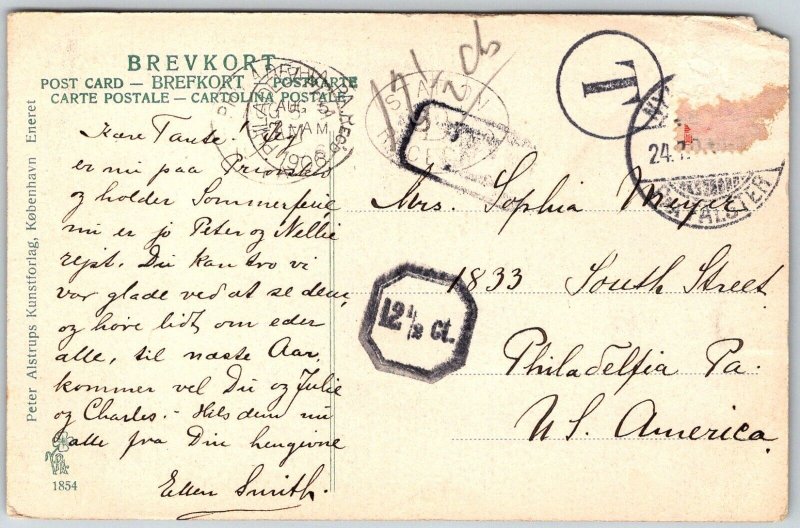 BREVKORT
POST CARD — BREFKORT — POSTKARTE
CARTE POSTALE — CARTOLINA POSTALE
Kære Tante! Jeg
er nu paa
og holder Sommerferie,
nu er jo Peter og Nellie
rejst. Du kan tro vi
var glade ved at se dem,
og høre lidt om eder
alle, til næste Aar,
kommer vel Du og Julie
og Charles. - Hils dem nu
alle fra Din hengivne
Ellen Smith.
Peter Alstrups Kunstforlag, København Eneret
1854
12 1/2 cts
T
STATION
24.7.
1908
Mrs. Sophia Meyer
1833 South Street
12 1/2 ct.
Philadelfia Pa.
U.S. America.